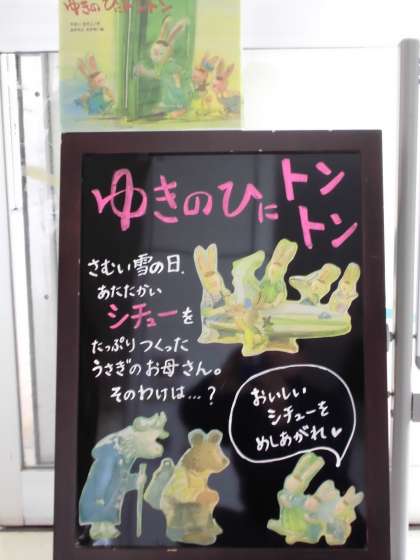 ゆきのひにトントン
ゆきのひにトン
トン
さむい雪の日、
あたたかい
シチューを
たっぷりつくった
うさぎのお母さん。
そのわけは…？
おいしい
シチューを
めしあがれ♥